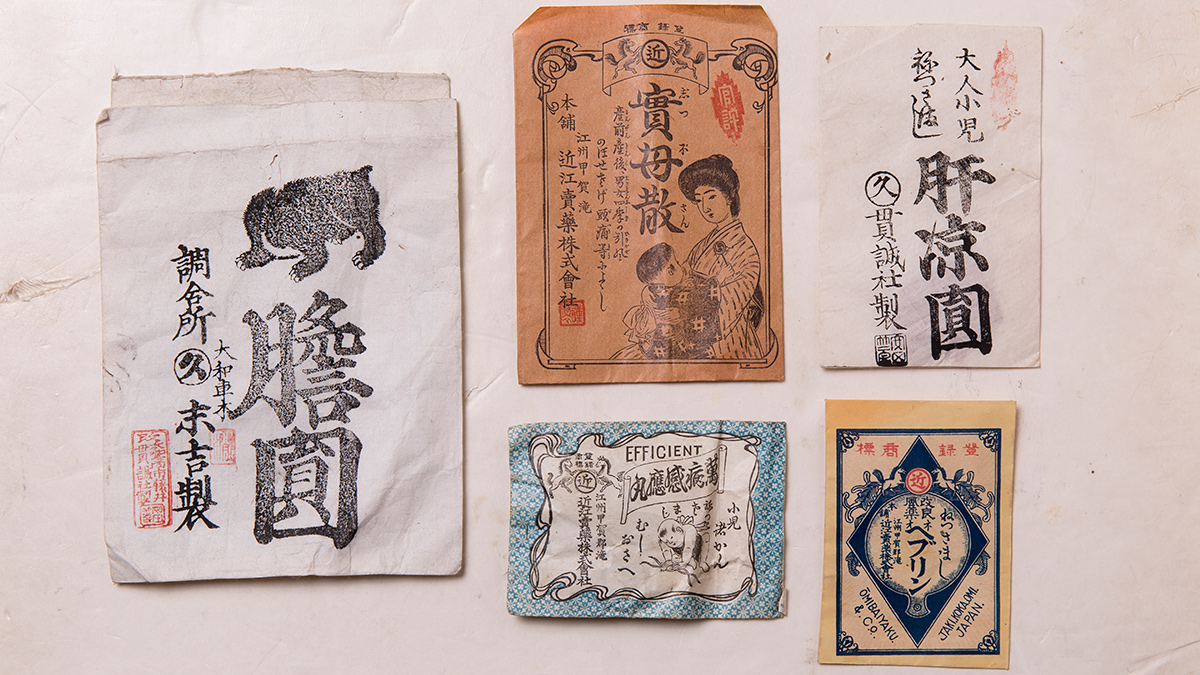 膽圓
大和車木
調合所
久
末吉製
登錄商標
近
官許
實母散
じつ
ぼ
さん
産前産後男女四季の引風
のぼせさげ頭痛等によし
江州甲賀滝
本舗 近江賣藥株式會社
大人小児
ねつさまし
肝凉圓
久
貫誠社製
EFFICIENT
登錄商標
近
萬病感應丸
小児
諸かん
ねつさまし
むしおさへ
江州甲賀郡滝
近江賣藥株式會社
登錄商標
近
ねつさまし
改良
ヘブリン
本舗
江州甲賀郡滝
近江賣藥株式會社
ŌMIBAIYAKU.
& CO.
TAKI.KOKA.OMI.
JAPAN.